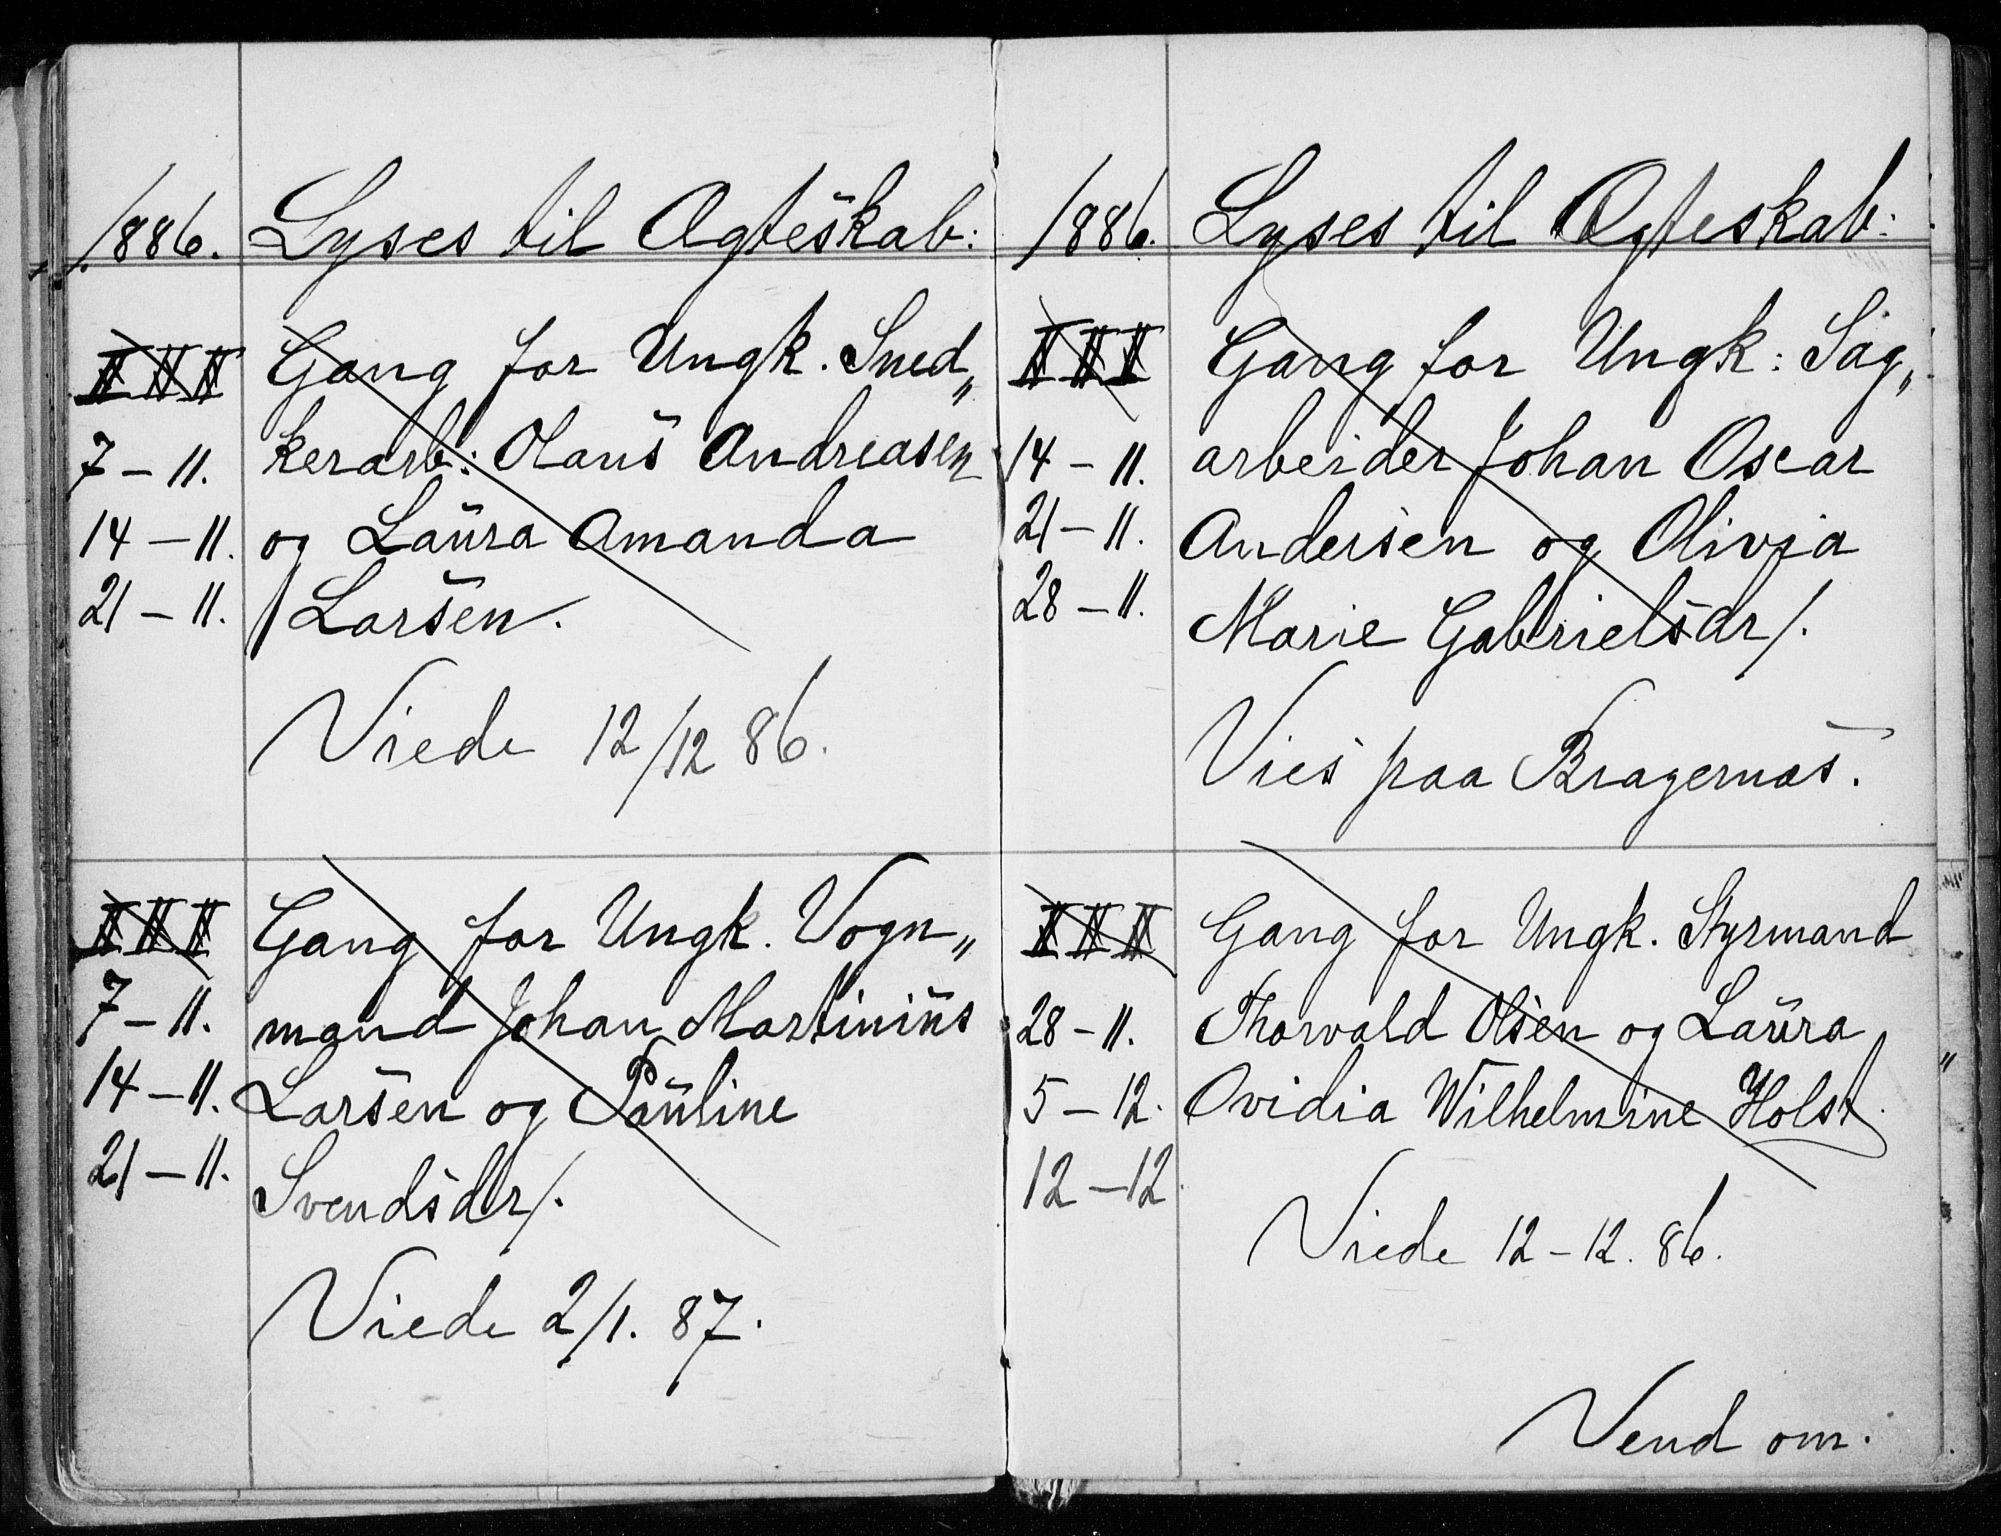 1886. Lyses til Ægteskab:
I II III Gang for Ungk. Sned„
7 – 11. kerarb: Olaus Andreasen
14 – 11. og Laura Amanda
21 – 11. Larsen.
Viede 12/12 86.
I II III Gang for Ungk. Vogn„
7 – 11. mand Johan Martinius
14 – 11. Larsen og Pauline
21 – 11. Svendsdr/.
Viede 2/1. 87.
1886. Lyses til Ægteskab:
I II III Gang for Ungk: Sag„
14 – 11. arbeider Johan Oscar
21 – 11. Andersen og Olivia
28 – 11. Marie Gabrielsdr/.
Vies paa Bragernæs.
I II III Gang for Ungk. Styrmand
28 – 11. Thorvald Olsen og Laura
5 – 12. Ovidia Wilhelmine Holst
12 – 12
Viede 12 – 12. 86.
Vend om.